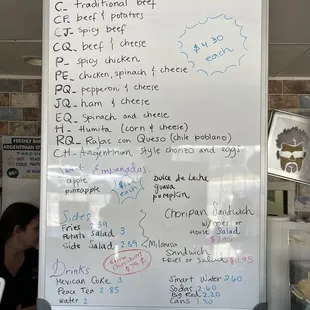 C- traditional beef
CP- beef & potatoes
CJ- spicy beef
CQ- beef & cheese
P- spicy chicken
PE- chicken, spinach & cheese
PQ- pepperoni & cheese
JQ- ham & cheese
EQ- Spinach and cheese
H- Humita (corn & cheese)
RQ- Rajas con Queso (chile poblano)
CH- Argentinian Style chorizo and eggs
$4.30
each
Empanadas
apple
pineapple
each
Dulce de Leche
guava
pumpkin
Sides
Fries
Potato Salad 3
Side Salad 2.59
Choripan Sandwich
w/ Fries or
House Salad
Milanesa
Sandwich
Fries or Salad
Drinks
Mexican Coke 3
Peace Tea 2.85
water 2
Smart Water 2.60
Sodas 2.60
Big Red 2.20
Cans 1.50